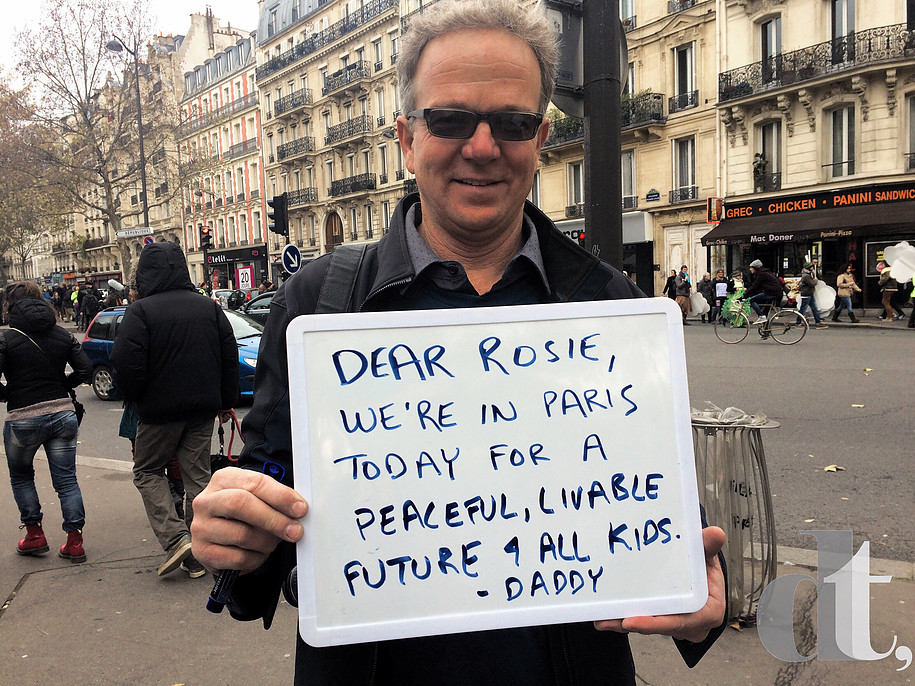 DEAR ROSIE,
WE'RE IN PARIS
TODAY FOR A
PEACEFUL, LIVABLE
FUTURE 4 ALL KIDS.
- DADDY
GREC CHICKEN • PANINI SANDWICH
Mac Doner
Panini-Pizza
etit
20
dt,